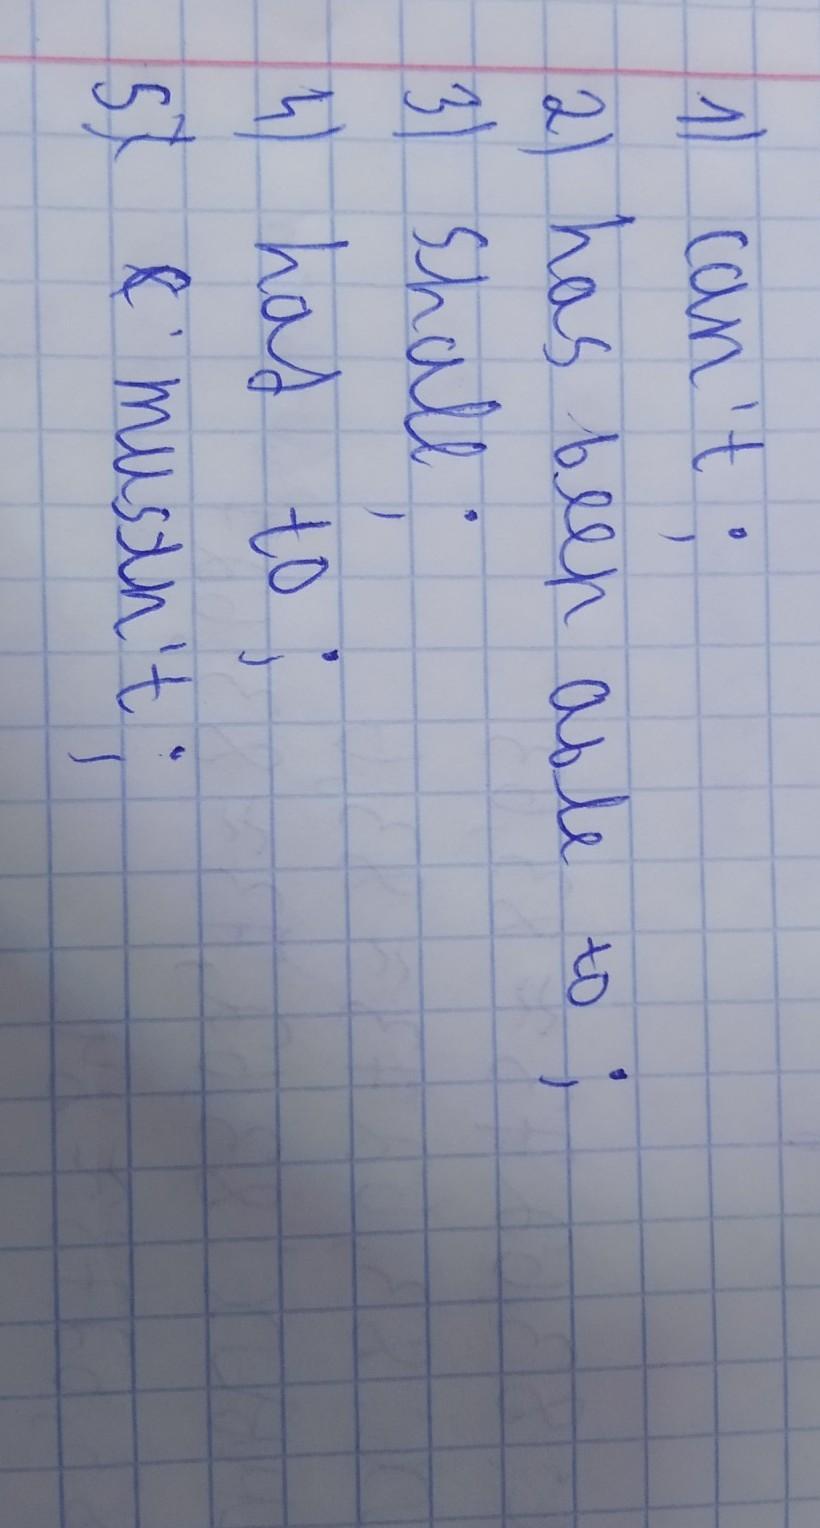 1) can't;
2) has been able to;
3) shall;
4) had to;
5) mustn't;